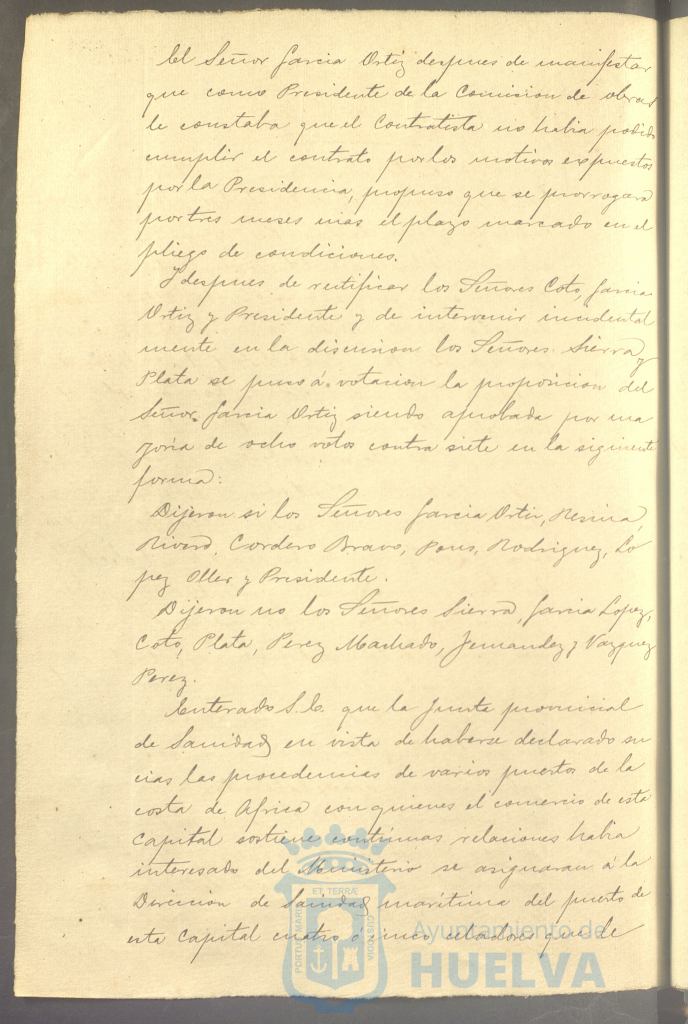 El Señor Garcia Ortiz despues de manifestar
que como Presidente de la Comision de obras
le constaba que el Contratista no habia podido
cumplir el contrato por los motivos expuestos
por la Presidencia, propuso que se prorrogara
por tres meses mas el plazo marcado en el
pliego de condiciones.
Y despues de rectificar los Señores Coto, Garcia
Ortiz y Presidente y de intervenir incidental
mente en la discusion los Señores Sierra y
Plata se puso á votacion la proposicion del
Señor Garcia Ortiz siendo aprobada por ma
yoria de ocho votos contra siete en la siguiente
forma:
Dijeron si los Señores Garcia Ortiz,
Cordero Bravo, Pons, Rodriguez, Lo
pez Oller y Presidente.
Dijeron no los Señores Sierra, Garcia Lopez,
Coto, Plata, Perez Machado, Fernandez y Vazquez
Perez.
Enterado S.E. que la Junta provincial
de Sanidad en vista de haberse declarado su
cias las procedencias de varios puertos de la
costa de Africa con quienes el comercio de esta
Capital sostiene continuas relaciones habia
interesado del Ministerio se asignaran á la
Direccion de Sanidad maritima del puerto de
esta Capital cuatro ó cinco celadores que le
PORTUS MARIS ET TERRÆ CUSTODIA
Ayuntamiento de
HUELVA